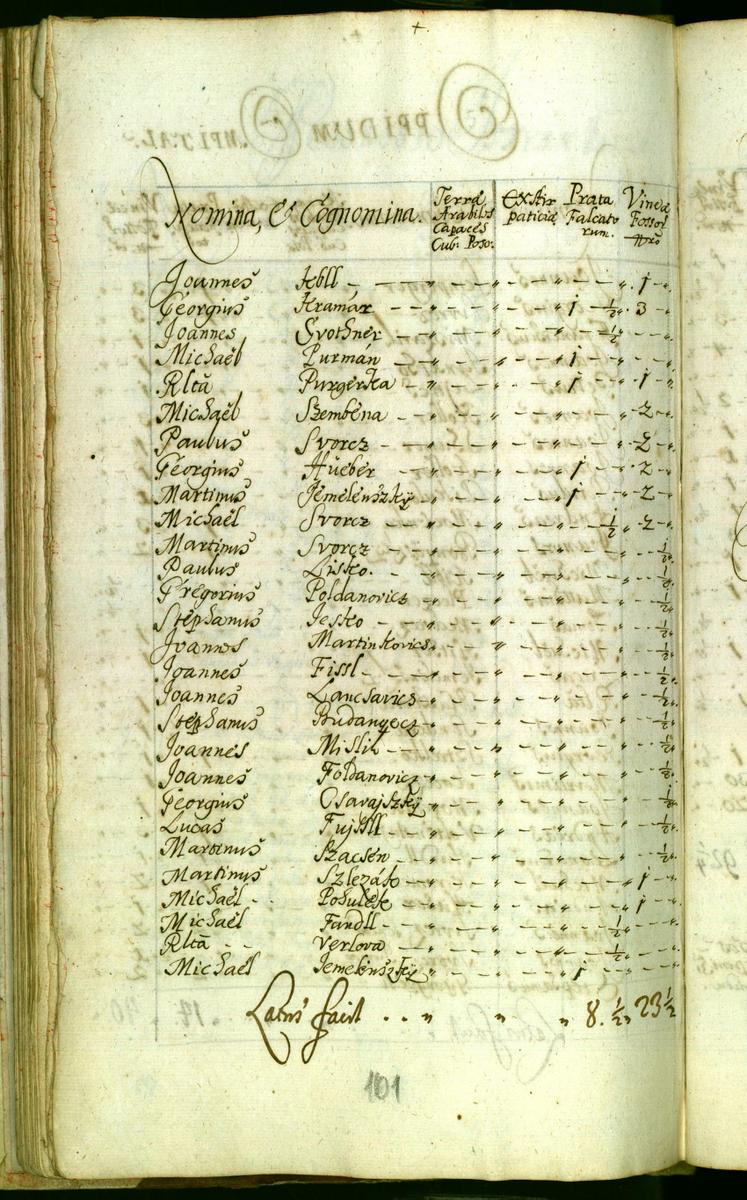 Nomina, & Cognomina. Terræ Arabiles Capaces Cub: Poso: Exstirpaticiæ Prata Falcatorum. Vineæ Fossor
Joannes Hbll 1
Georgius Hramár 1 ½ 3
Joannes Svothner ½
Michaël Purmán 1
Rlta Purgerka 1 1
Michaël Szembéna 2
Paulus Svorcz 2
Georgius Hueber 1 2
Martinus Jemelénszky 1 2
Michaël Svorcz ½ 2
Martinus Svorcz ½
Paulus Lisko. ½
Gregorius Poldanovicz ½
Stephanus Jesko ½
Joannes Martinkovics ½
Joannes Fissl ½
Joannes Lancsavics ½
Stephanus Budanyecz ½
Joannes Mislik ½
Joannes Foldanovicz ½
Georgius Osavajszky ½
Lucas ½
Martinus Szacsén ½
Martinus Szlezák 1
Michaël Pohulek 1
Michaël Fandll ½
Rlta Verlova ½
Michaël Jemelénszky 1
Latus facit 8. ½ 23 ½
101